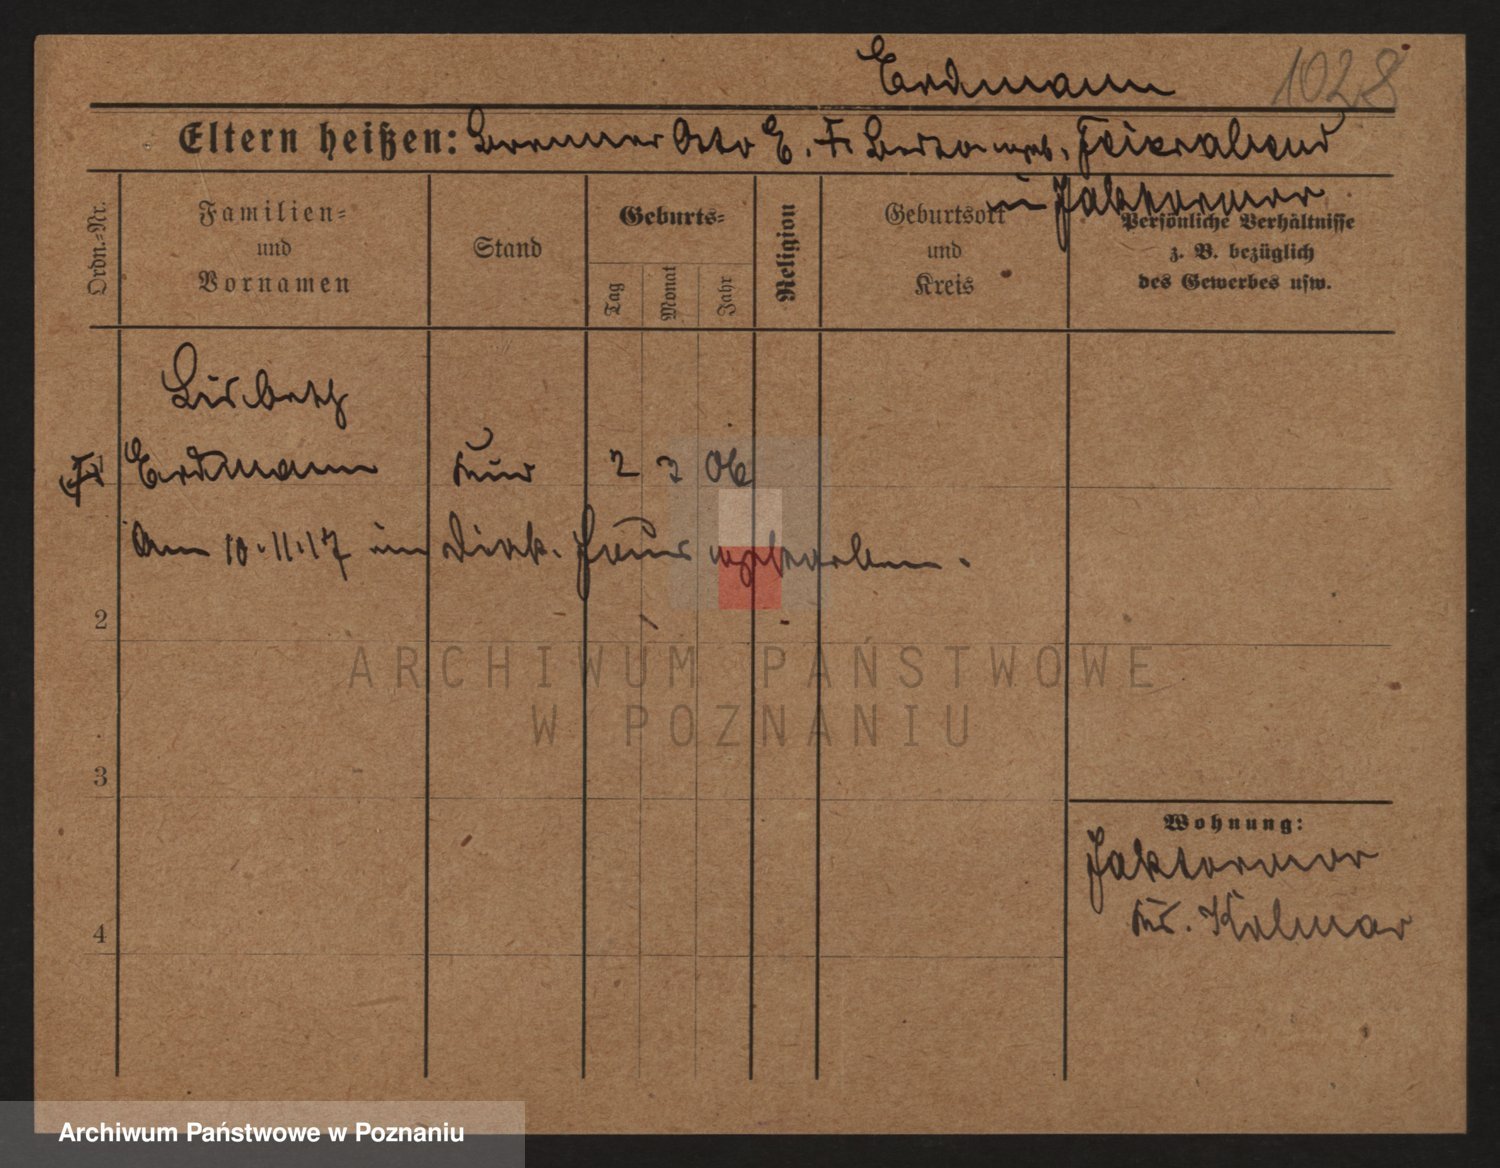 Erdmann 1028
Eltern heißen: Brenner Otto E. Fr. geb. Feierabend
in Jaktormor
Ordn.-Nr.
Familien-
und
Vornamen
Stand
Geburts-
Tag
Monat
Jahr
Religion
Geburtsort
und
Kreis
Persönliche Verhältnisse
z. B. bezüglich
des Gewerbes usw.
Lisbeth
1 Erdmann Kind 2 3 06
Am 10.11.17 im Diak. Haus gestorben.
2
3
4
Wohnung:
Jaktormor
Krs. Kolmar
ARCHIWUM PAŃSTWOWE
W POZNANIU
Archiwum Państwowe w Poznaniu